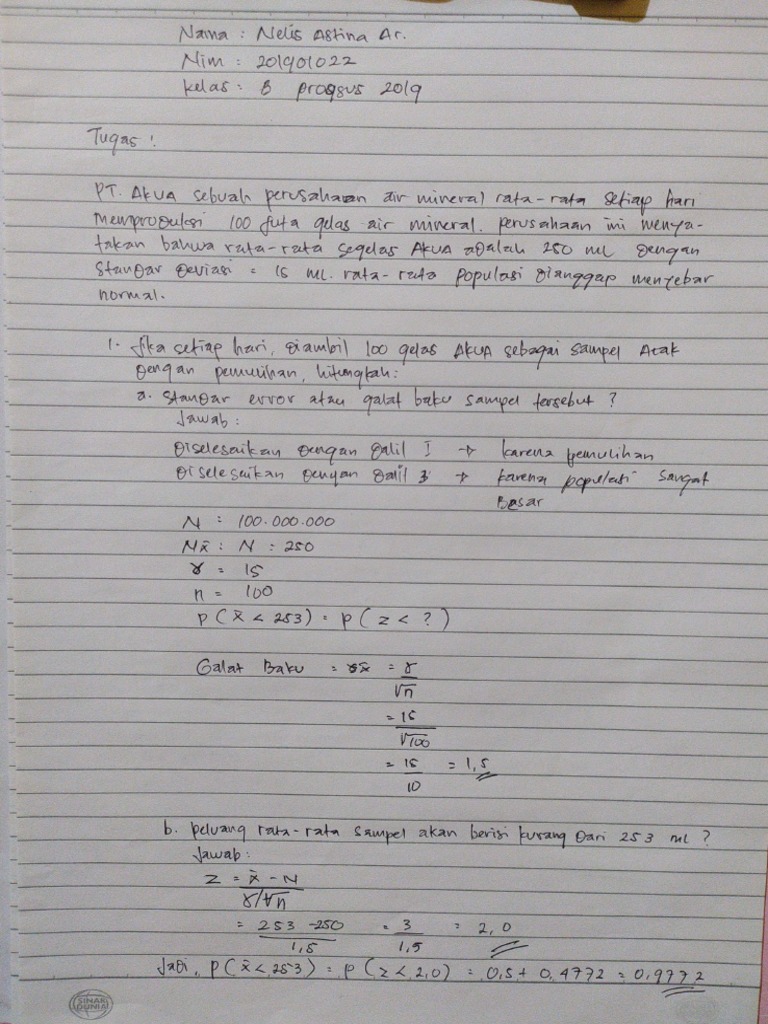 Nama : Nelis Astina Ar.
Nim : 201901022
Kelas : B progsus 2019
Tugas :
PT. AKUA sebuah perusahaan air mineral rata-rata setiap hari
memproduksi 100 juta gelas air mineral. perusahaan ini menya-
takan bahwa rata-rata segelas AKUA adalah 250 ml dengan
standar deviasi = 15 ml. rata-rata populasi dianggap menyebar
normal.
1. Jika setiap hari, diambil 100 gelas AKUA sebagai sampel Acak
dengan pemulihan, hitungkah :
a. standar error atau galat baku sampel tersebut ?
Jawab :
Diselesaikan dengan dalil I → karena pemulihan
Diselesaikan dengan dalil 3 → karena populasi sangat
Besar
N = 100.000.000
Nx̄ : N = 250
γ = 15
n = 100
P ( x̄ < 253 ) = P ( z < ? )
Galat Baku = γx̄ = γ
√n
= 15
√100
= 15 = 1,5
10
b. peluang rata-rata sampel akan berisi kurang dari 253 ml ?
Jawab :
Z = x̄ - N
γ/√n
= 253 - 250 = 3 = 2,0
1,5 1,5
Jadi, P( x̄ < 253 ) = P ( z < 2,0 ) = 0,5 + 0,4772 = 0,9772
SINAR DUNIA